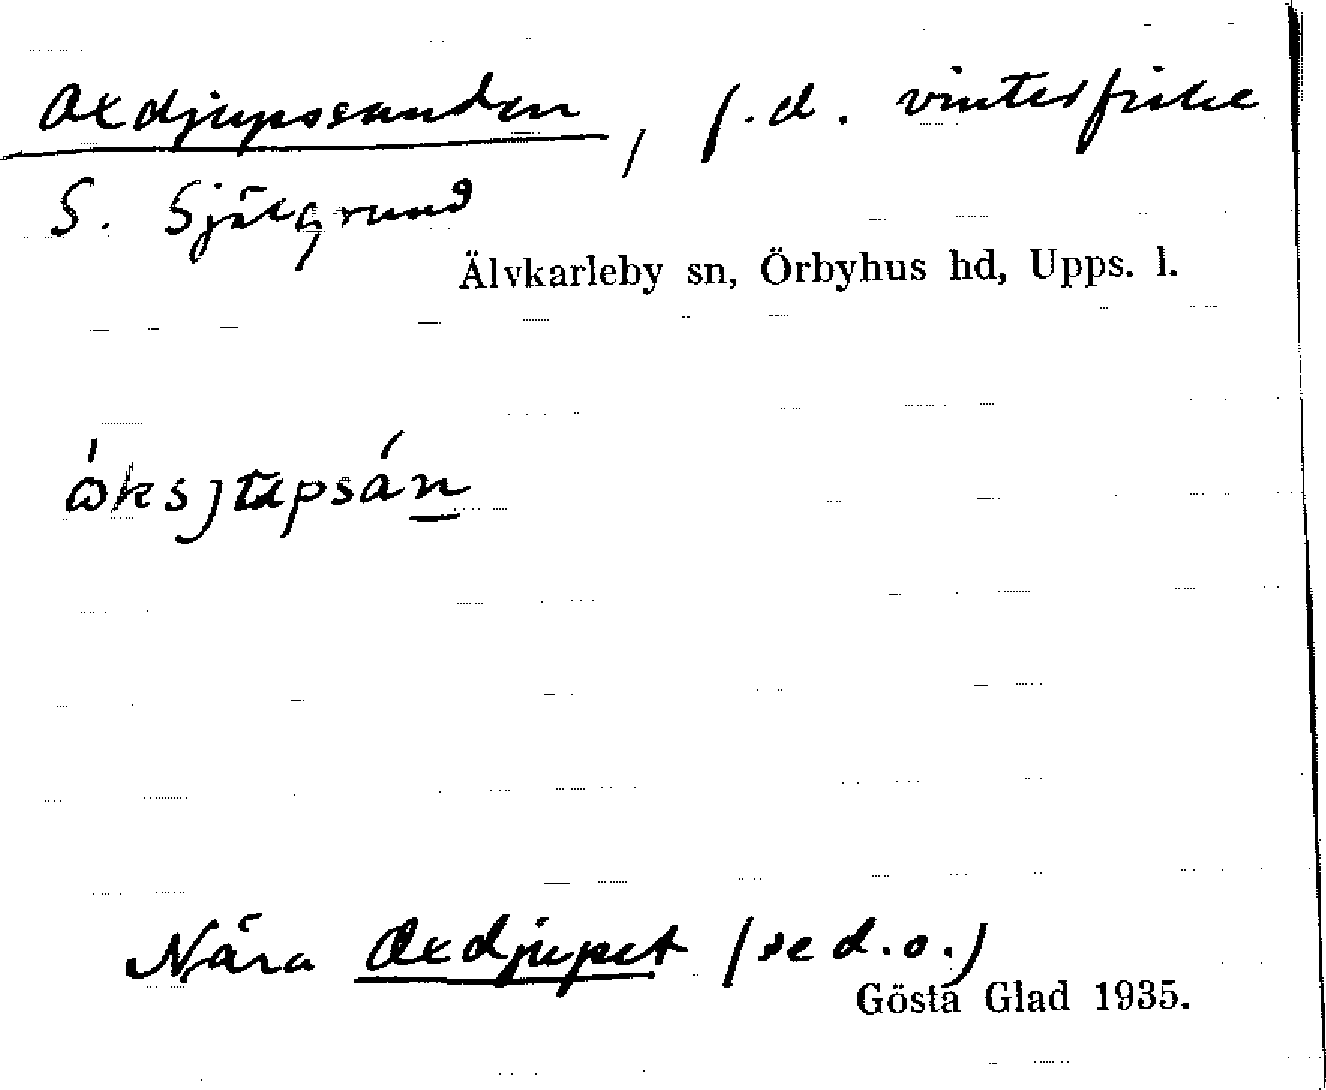 Oxdjupssanden, f.d. vinterfiske
S. Sjögrund
Älvkarleby sn, Örbyhus hd, Upps. l.
Nära Oxdjupet (se d.o.)
Gösta Glad 1935.